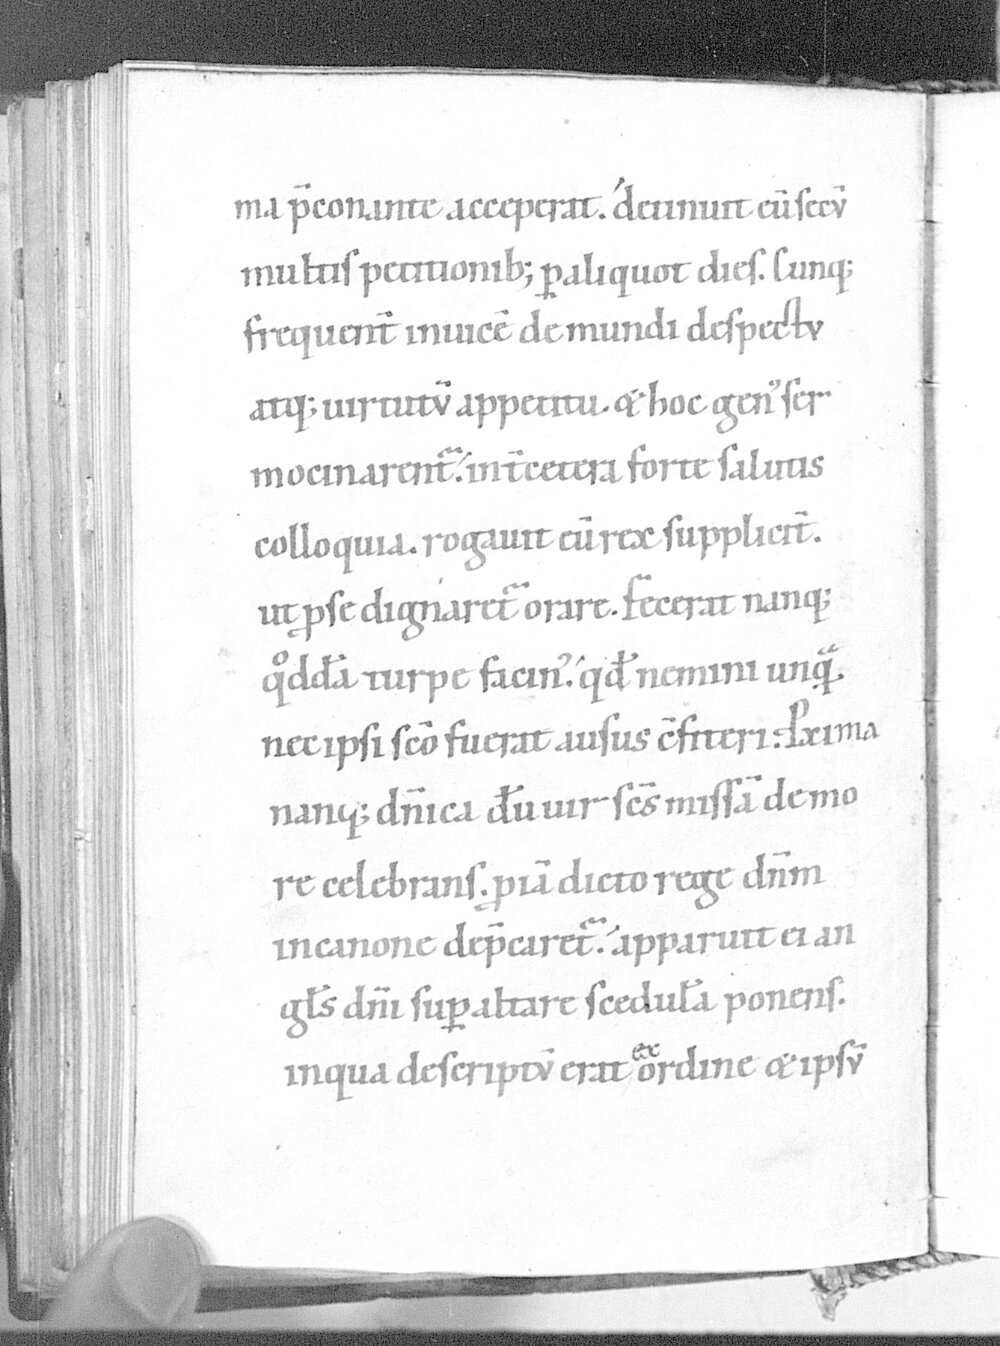 ma p̄conante acceperat. detinuit eū secū
multis petitionib; ꝑ aliquot dies. Cunq;
frequent̄ inuicē de mundi despectu
atq; uirtutū appetitu. & hoc genꝰ ser
mocinarent᷑. int̄ cetera forte salutis
colloquia. rogauit eū rex supplicit̄.
ut ꝓ se dignaret᷑ orare. Fecerat nanq;
qͦddā turpe facinꝰ. qđ nemini unqͣ.
nec ipsi scō fuerat ausus c̄fiteri. Proxima
nanq; dn̄ica dū uir scs̄ missā de mo
re celebrans. ꝓ iā dicto rege dn̄m
in canone dep̄caret᷑. apparuit ei an
gl̄s dn̄i suꝑ altare scedulā ponens.
in qua descriptū erat ex ordine & ipsū